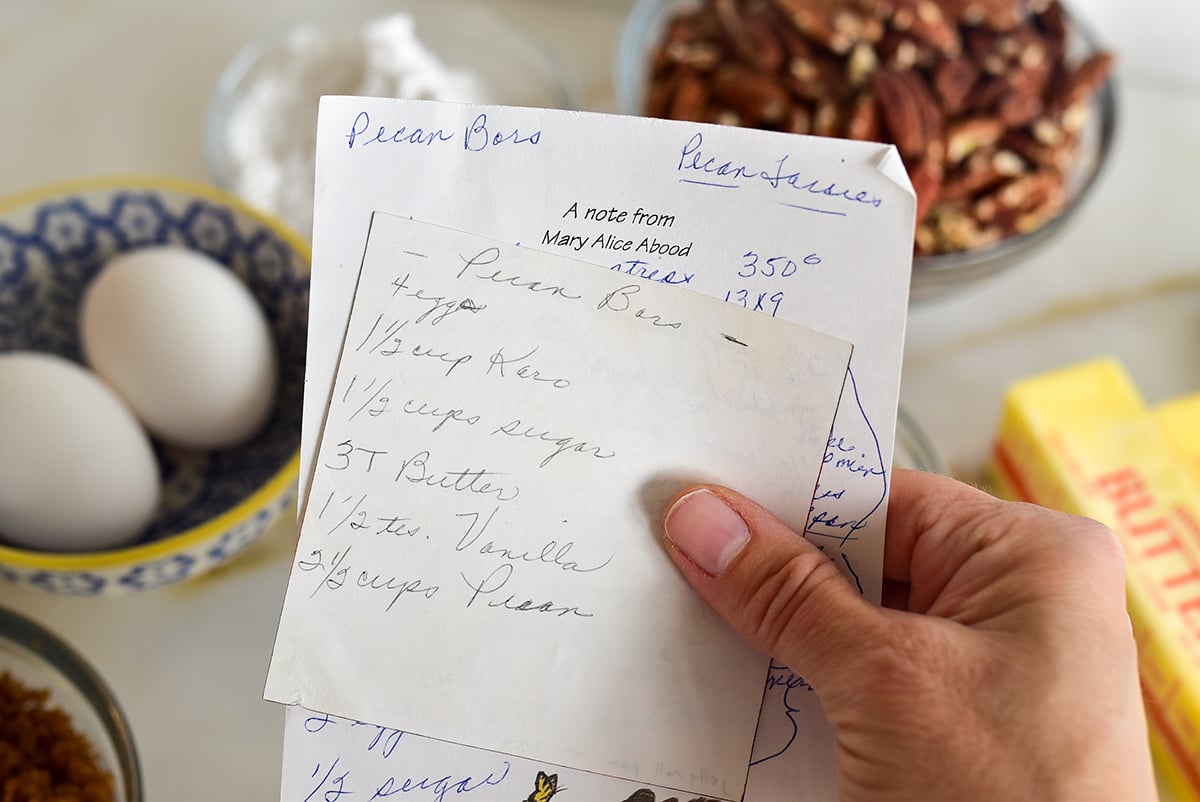 Pecan Bars
Pecan Tassies
A note from
Mary Alice Abood
350°
13x9
- Pecan Bars -
4 eggs
1 1/2 cup Karo
1 1/2 cups sugar
3T Butter
1 1/2 tes. Vanilla
2 1/2 cups Pecan
1/2 sugar
BUTTE